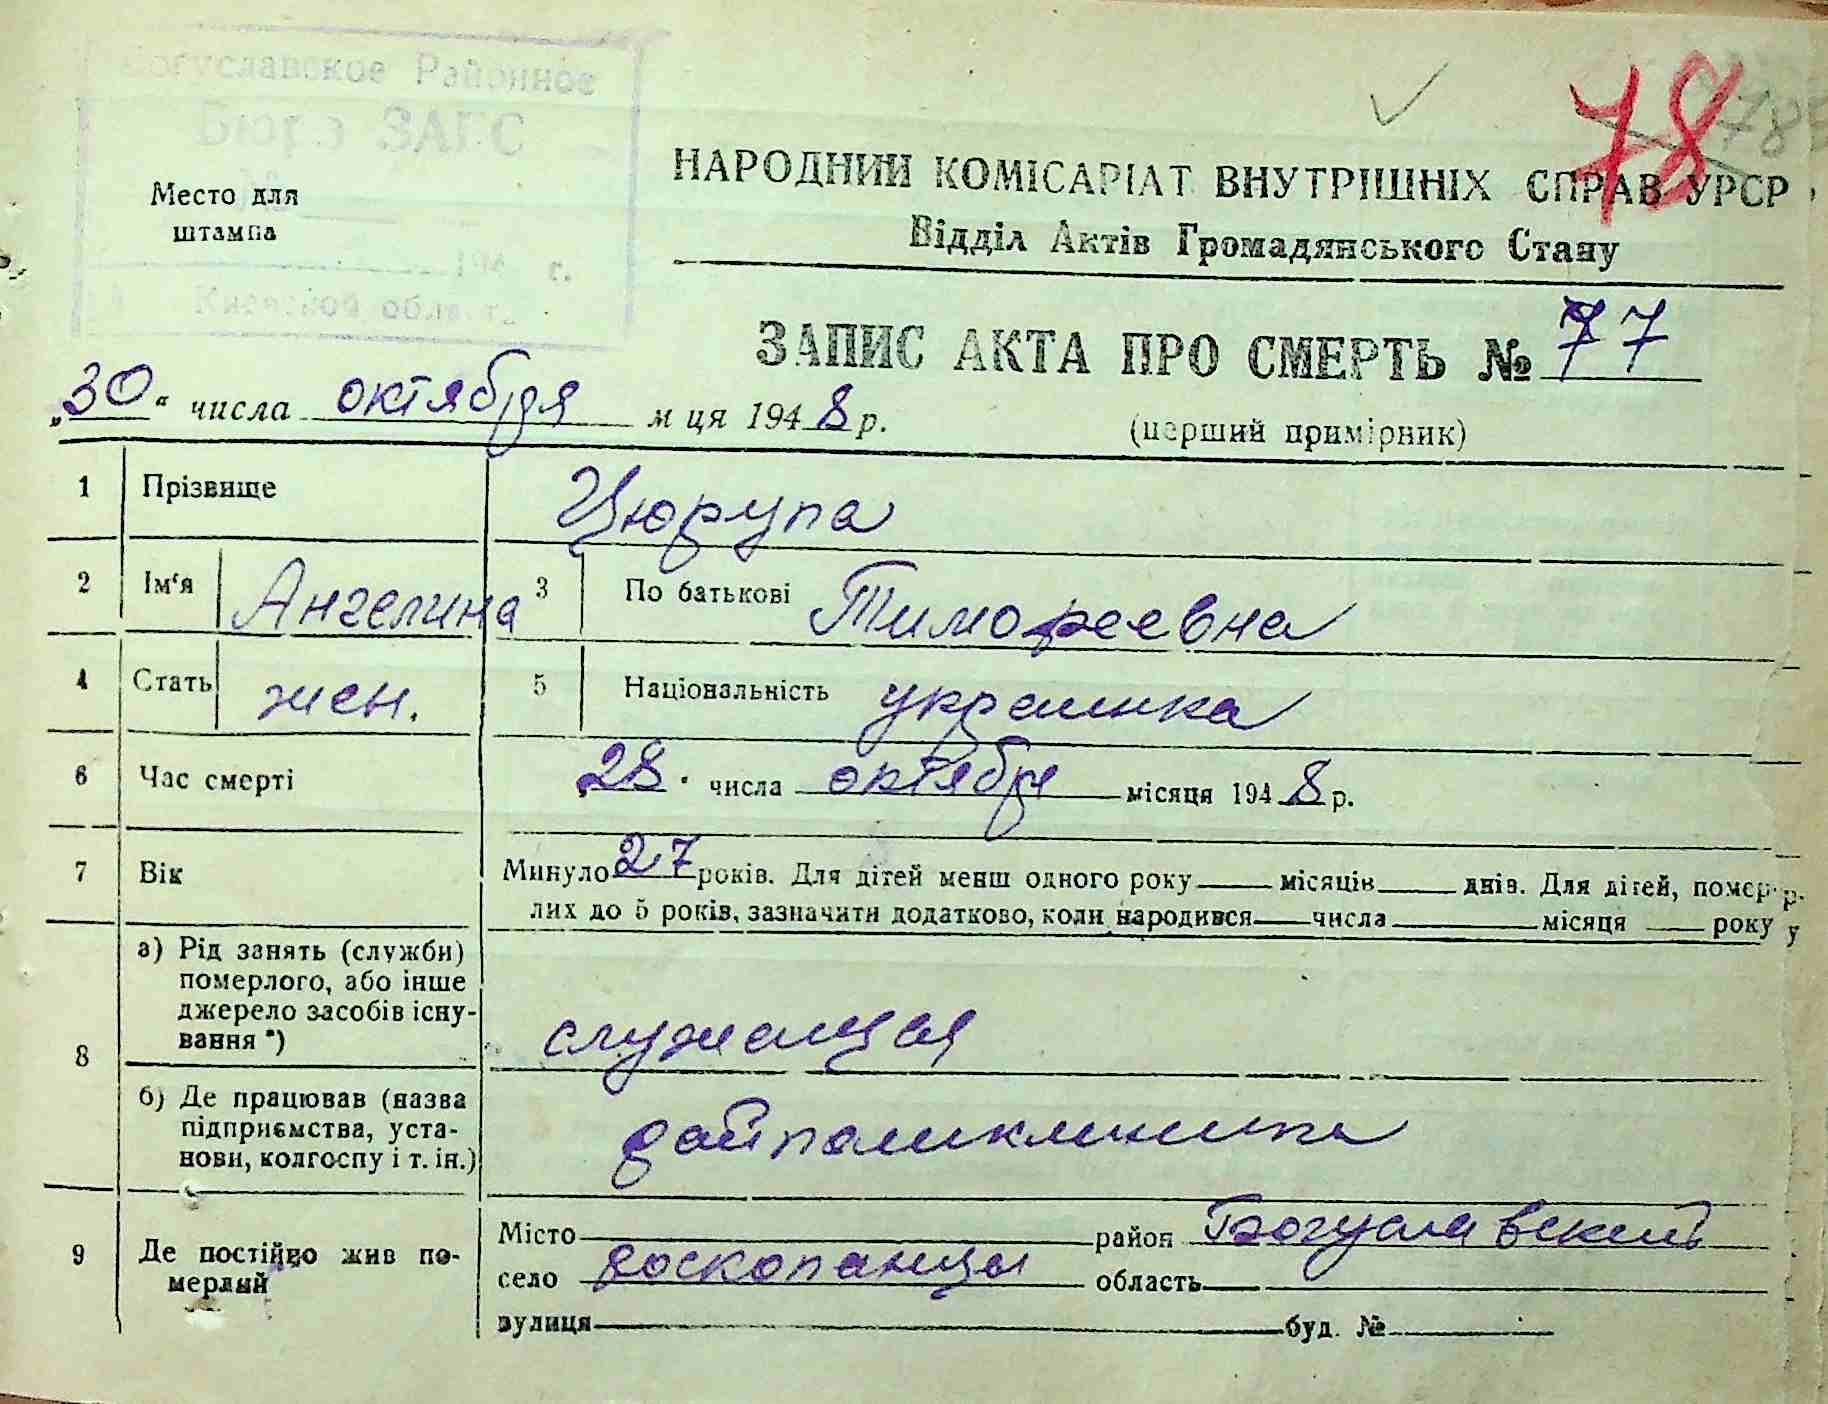 Богуславское Районное
Бюро ЗАГС
№
194 г.
Киевской област.
Место для
штампа
78
785
НАРОДНИЙ КОМІСАРІАТ ВНУТРІШНІХ СПРАВ УРСР
Відділ Актів Громадянського Стану
ЗАПИС АКТА ПРО СМЕРТЬ № 77
„30“ числа октября м ця 1948 р.
(перший примірник)
1 Прізвище Цюрупа
2 Ім‘я Ангелина 3 По батькові Тимофеевна
4 Стать жен. 5 Національність украинка
6 Час смерті „28. числа октября місяця 1948 р.
7 Вік Минуло 27 років. Для дітей менш одного року місяців днів. Для дітей, помер-
лих до 5 років, зазначити додатково, коли народився числа місяця року
8 а) Рід занять (служби)
померлого, або інше
джерело засобів існу-
вання *) служащая
б) Де працював (назва
підприємства, уста-
нови, колгоспу і т. ін.) райполиклиника
9 Де постійно жив по-
мерлий
Місто район Богуславский
село Роскопанцы область
вулиця буд. №